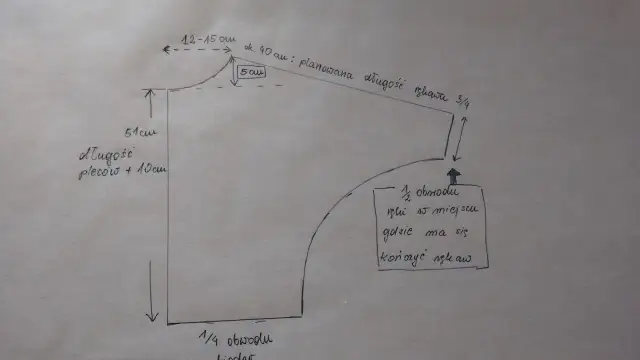 12-15cm
ok. 40cm : planowana długość rękawa 3/4
5cm
51cm
długość
pleców + 10cm
1/2 obwodu
ręki w miejscu
gdzie ma się
kończyć rękaw
1/4 obwodu
bioder